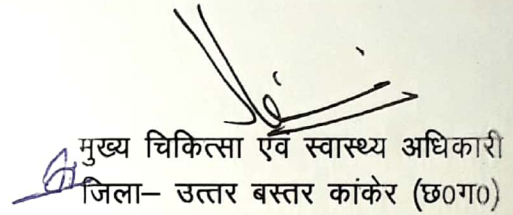 मुख्य चिकित्सा एवं स्वास्थ्य अधिकारी
जिला– उत्तर बस्तर कांकेर (छ0ग0)